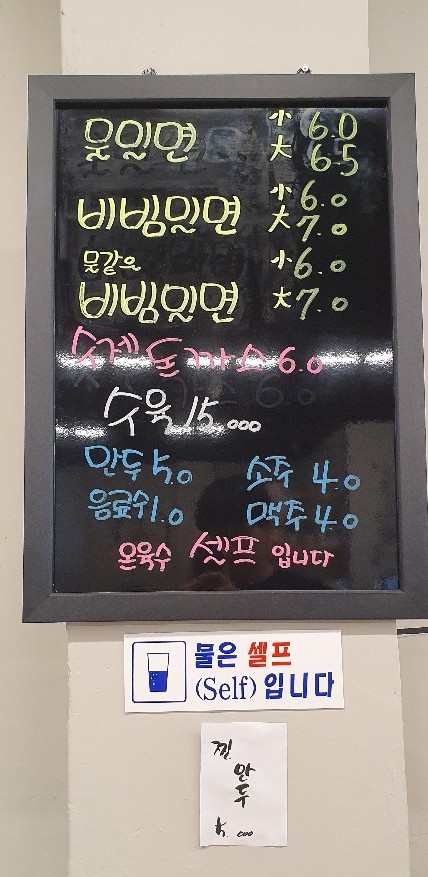 물밀면 小 6.0
大 6.5
비빔밀면 小 6.0
大 7.0
물같은 小 6.0
비빔밀면 大 7.0
수제돈까스 6.0
수육 15.000
만두 5.0 소주 4.0
음료수 1.0 맥주 4.0
온육수 셀프 입니다
물은 셀프
(Self) 입니다
찐
만
두
5.000